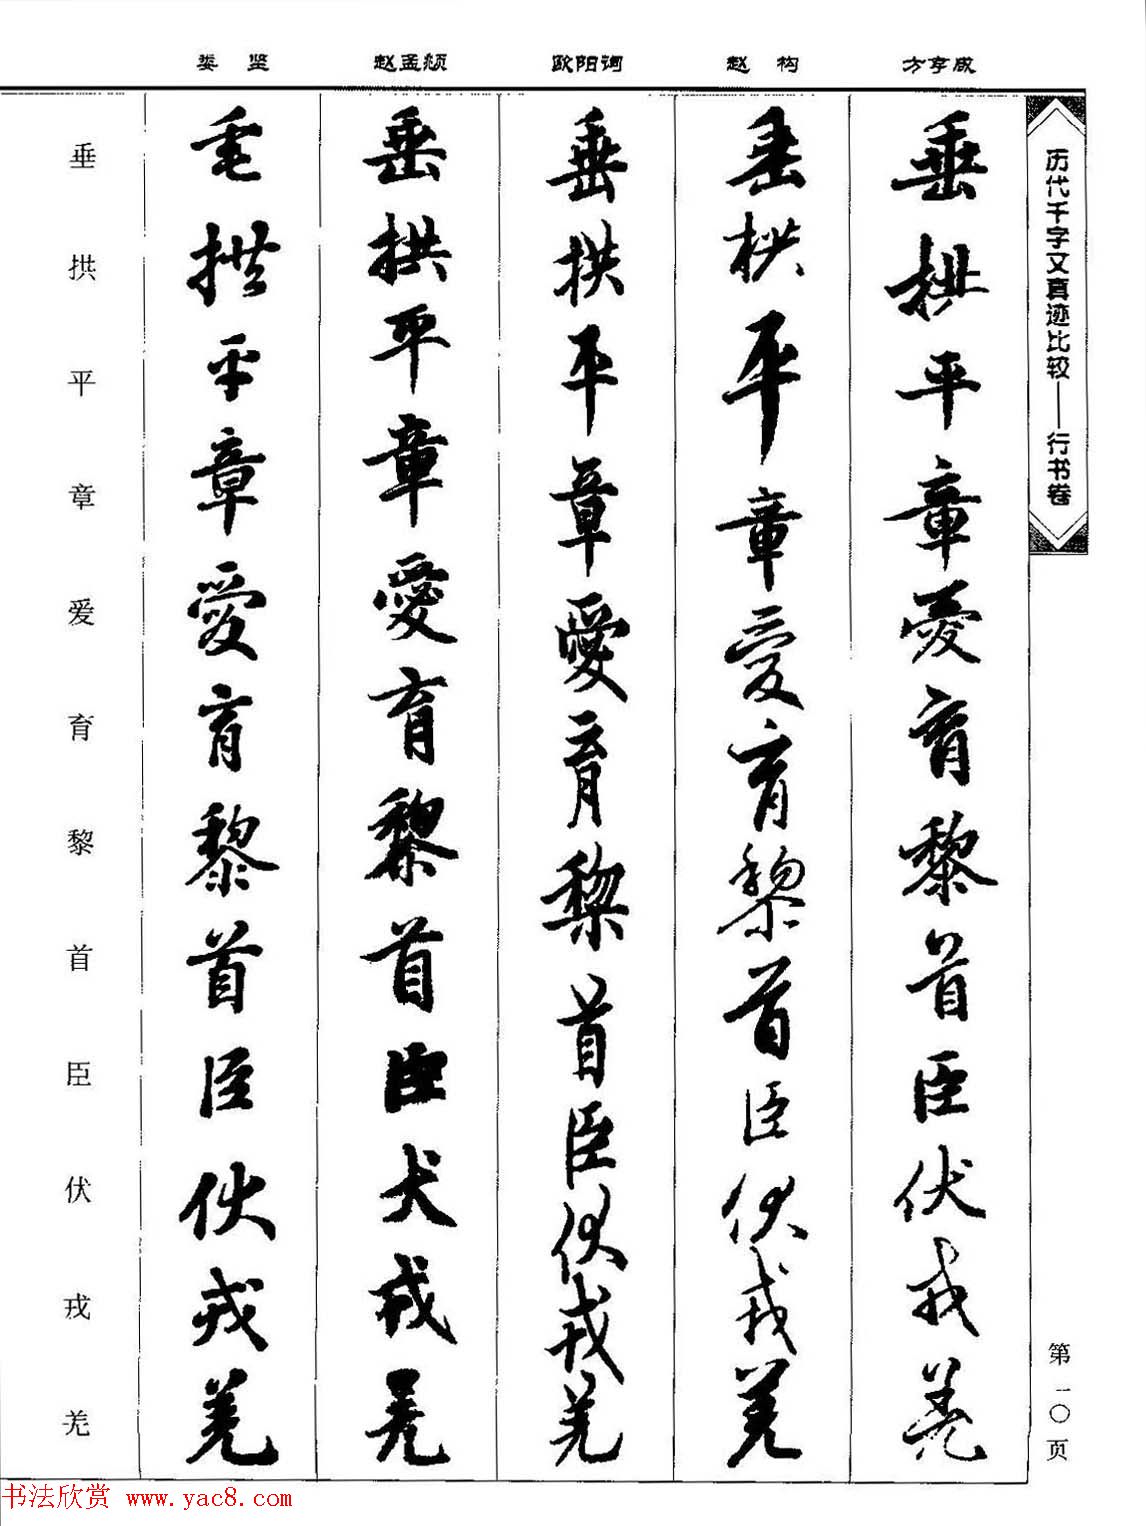 娄 坚 赵孟頫 欧阳询 赵 构 方孝成
历代千字文真迹比较——行书卷
垂拱平章愛育黎首臣伏戎羌
垂拱平章愛育黎首臣伏戎羌
垂拱平章愛育黎首臣伏戎羌
垂拱平章愛育黎首臣犬戎羌
垂拱平章愛育黎首臣伏戎羌
垂拱平章爱育黎首臣伏戎羌
第一〇页
书法欣赏 www.yac8.com